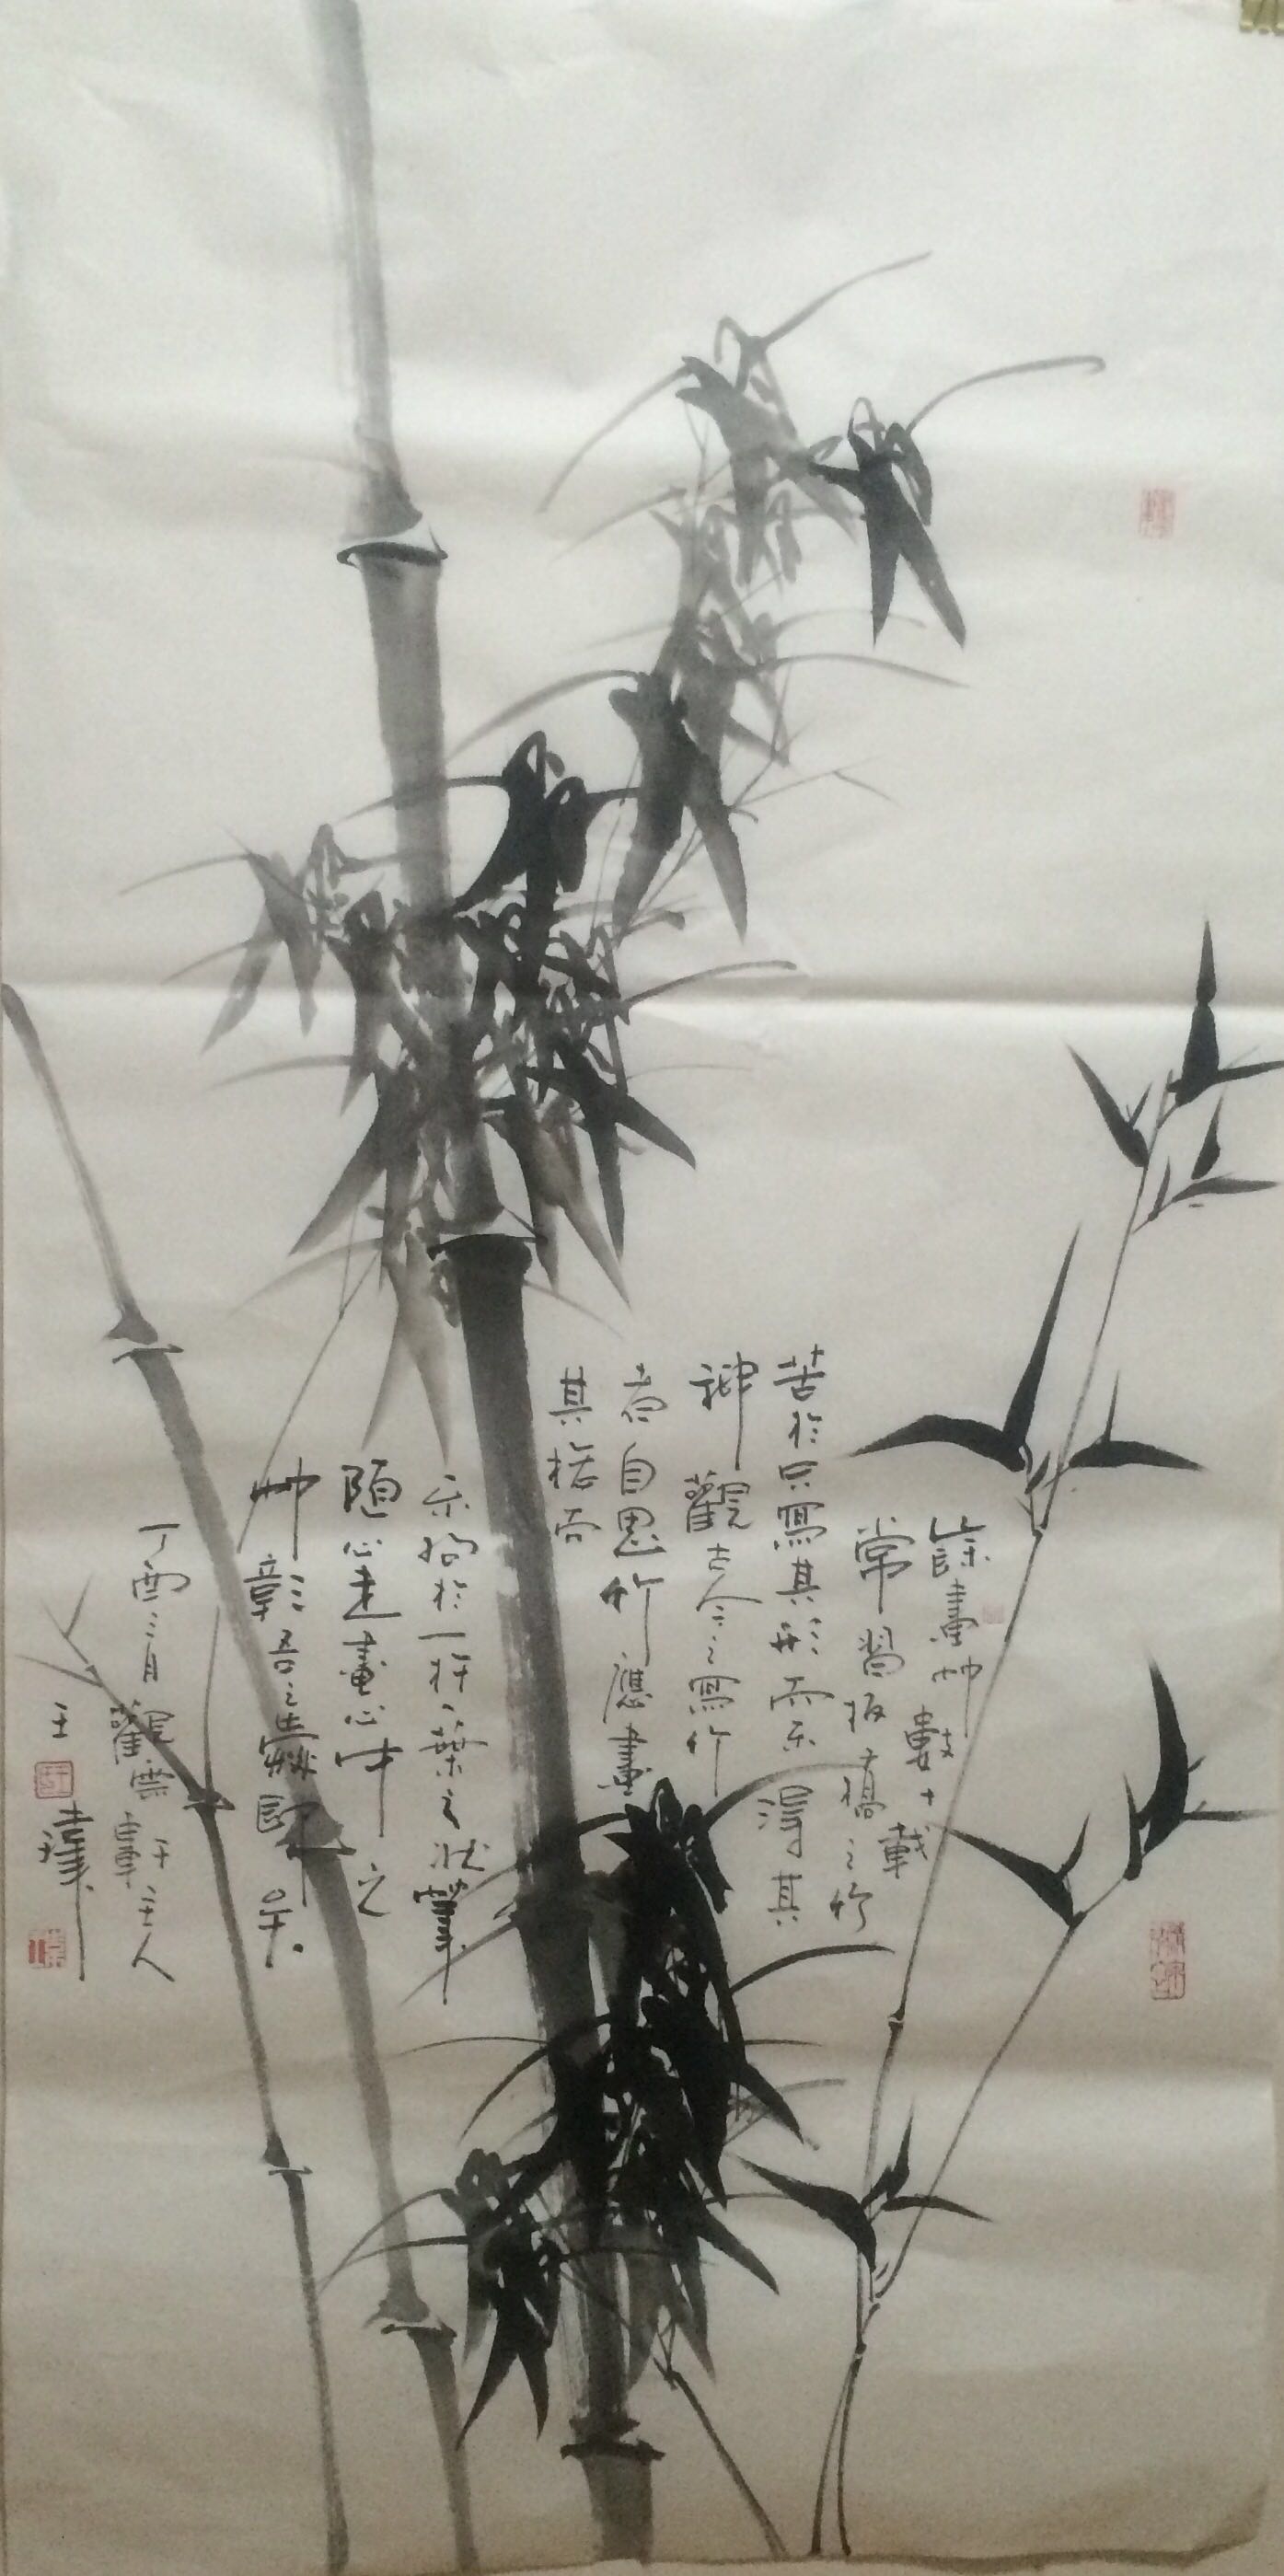 余畫竹數十載
常習板橋之竹
苦於只寫其形而不得其
神觀古今之寫竹
者自思竹應畫
其括而
不拘於一枝一葉之狀筆
隨心走畫心中之
竹彰吾之
丁酉三月觀雲軒主人
王